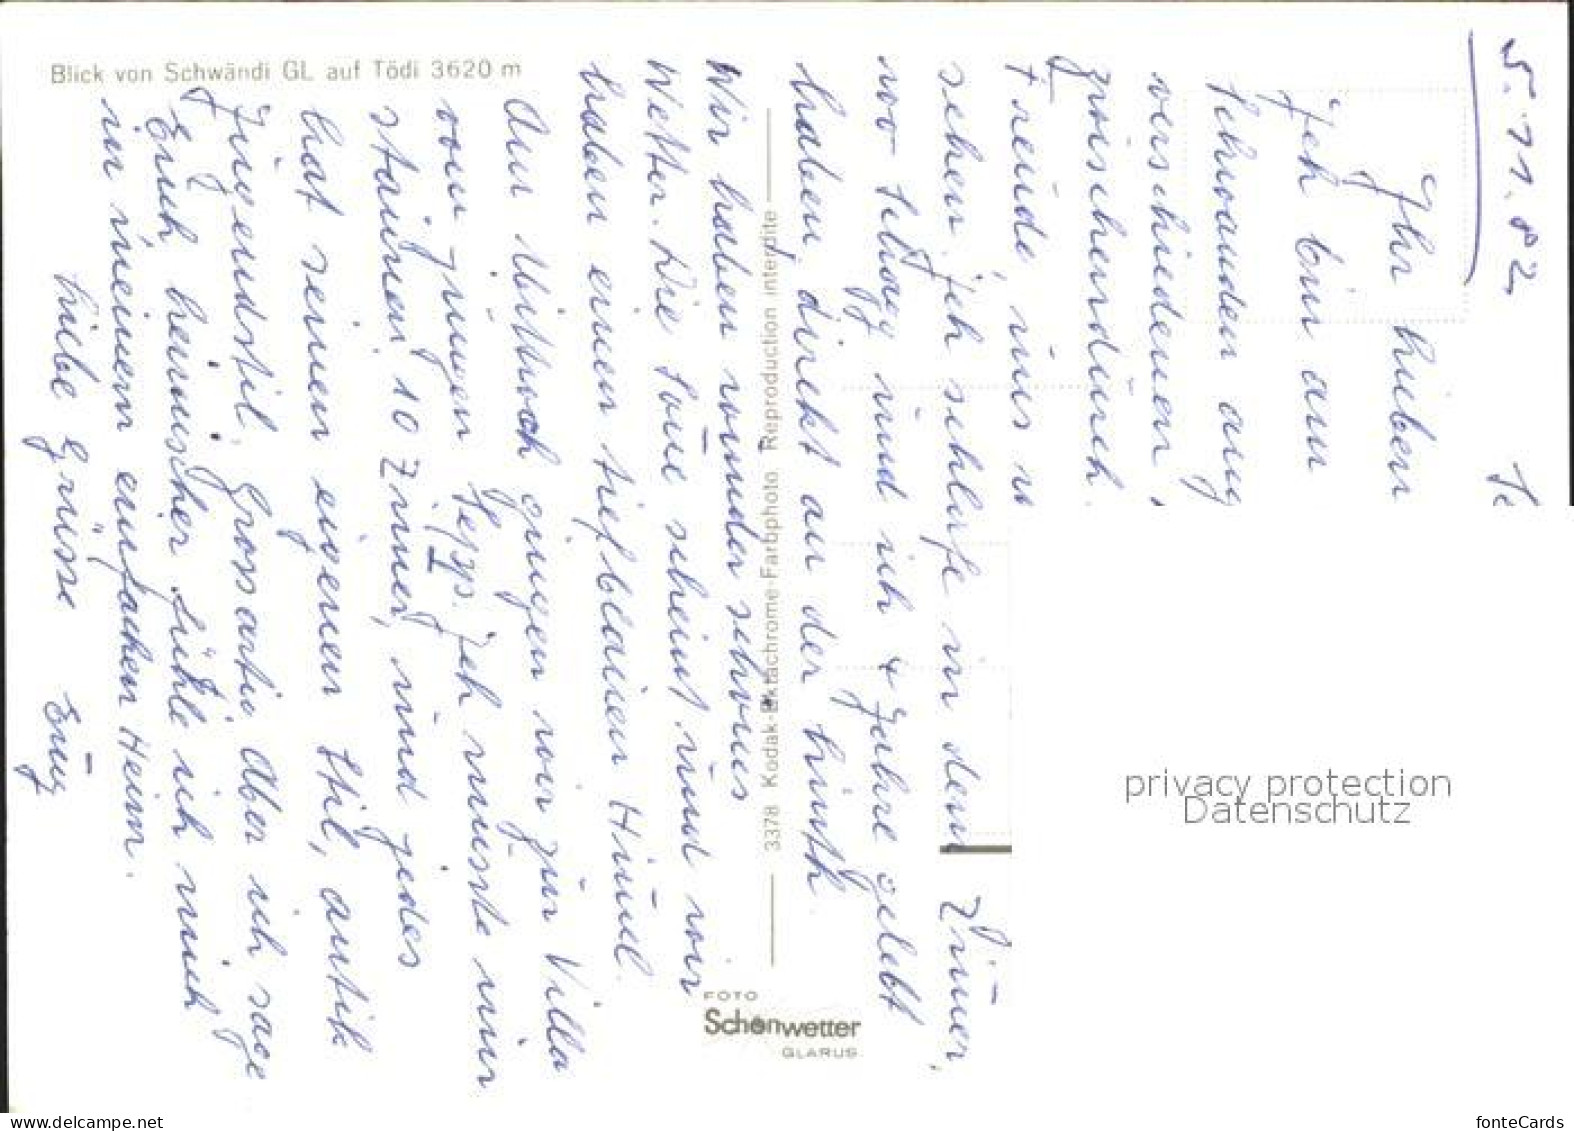 Blick von Schwändi GL auf Tödi 3620 m
5.11.82
Ihr Lieben
Ich bin am
verschiedenen
zwischendurch.
Freude, uns
sehen. Ich schlafe in dem Zimer,
wo und ich 4 Jahre gelebt
haben, direkt an der Linth.
Wir haben wunderschönes
Wetter. Die Sone scheint und wir
haben einen tiefblauen Himel.
Am Mittwoch gingen wir zur Villa
vom jungen Ich musste nur
staunen! 10 Zimer, und jedes
hat seinen eigenen Stil, antik
Jugendstil. Grossartig. Aber ich sage
Euch heimischer fühle ich mich
in meinem einfachen Heim.
Liebe Grüsse
3378 Kodak-Ektachrome-Farbphoto Reproduction interdite
FOTO
Schönwetter
GLARUS
privacy protection
Datenschutz
fonteCards
www.delcampe.net